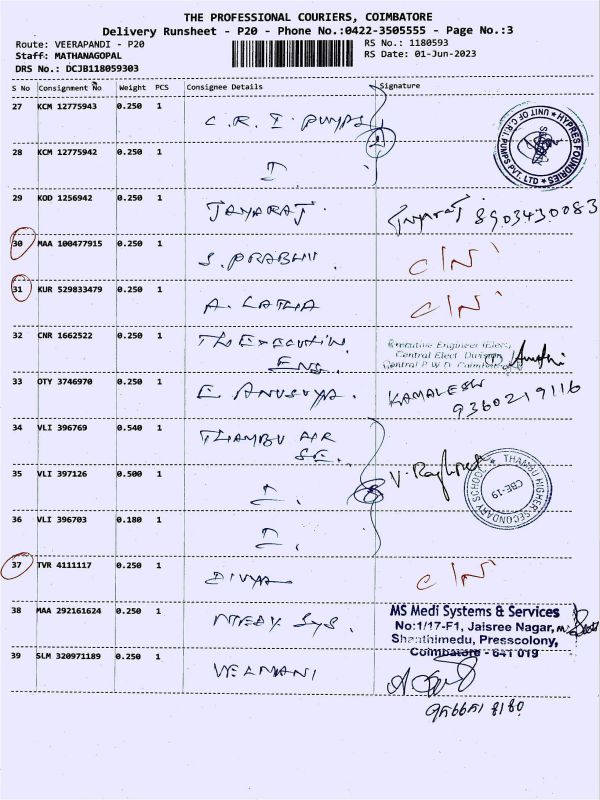 THE PROFESSIONAL COURIERS, COIMBATORE
Delivery Runsheet - P20 - Phone No.:0422-3505555 - Page No.:3
Route: VEERAPANDI - P20
RS No.: 1180593
Staff: MATHANAGOPAL
RS Date: 01-Jun-2023
DRS No.: DCJB118059303
S No Consignment No Weight PCS Consignee Details Signature
27 KCM 12775943 0.250 1 C.R.I PUMPS
HYPRES FOUNDRIES
UNIT OF C.R.I. PUMPS PVT. LTD
28 KCM 12775942 0.250 1
29 KOD 1256942 0.250 1 JAYARAJ. Jayaraj 8903430083
30 MAA 100477915 0.250 1 S. PRABHU C/N
31 KUR 529833479 0.250 1 A. LATHA C/N
32 CNR 1662522 0.250 1 The Executive
ENG.
Executive Engineer (Elec)
Central Elect Division
Central P.W.D.
33 OTY 3746970 0.250 1 E. ANUSUYA. KAMALESH
9360219116
34 VLI 396769 0.540 1 THAMBU AIR
SE.
35 VLI 397126 0.500 1
THAMBU HIGHER SECONDARY SCHOOL
CBE-19
36 VLI 396703 0.180 1
37 TVR 4111117 0.250 1 DIVYA C/N
38 MAA 292161624 0.250 1 MEDY SYS.
MS Medi Systems & Services
No:1/17-F1, Jaisree Nagar,
Shanthimedu, Presscolony,
Coimbatore - 641 019
39 SLM 320971189 0.250 1 VELMANI